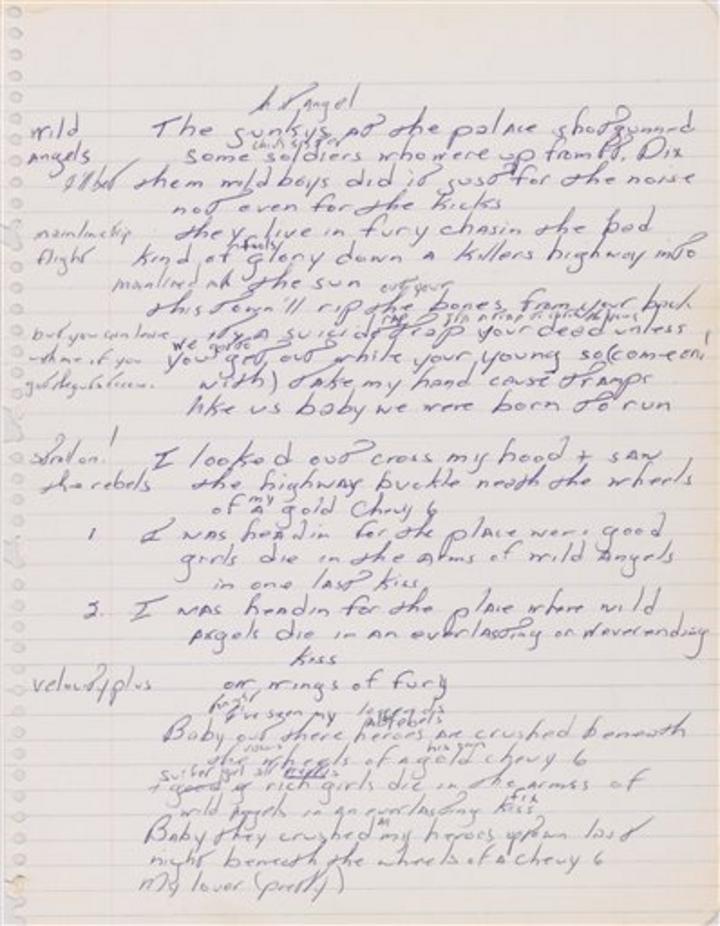 angel
wild The junkys at the palace shotgunned
angels some soldiers who were up from Ft. Dix
I'll bet them wild boys did it just for the noise
not even for the kicks
mainline they live in fury chasin the bad
flight kind of glory down a killers highway into
mainlined the sun out your
this town'll rip the bones from your back
but you can leave its a suicide trap your dead unless
we gotta
with me if you you get out while your young so (come on
with) take my hand cause tramps
like us baby we were born to run
I looked out cross my hood + saw
the rebels the highway buckle neath the wheels
my
of a gold Chevy 6
1. I was headin for the place were good
girls die in the arms of wild angels
in one last kiss
2. I was headin for the place where wild
angels die in an everlasting or neverending
kiss
velocity plus on wings of fury
I've seen my legends
rebels
Baby out there heroes are crushed beneath
the wheels of a gold chevy 6
+ good rich girls die in the armss of
wild angels in an everlasting kiss
Baby they crushed my heroes down last
night beneath the wheels of a Chevy 6
My lover (pretty)